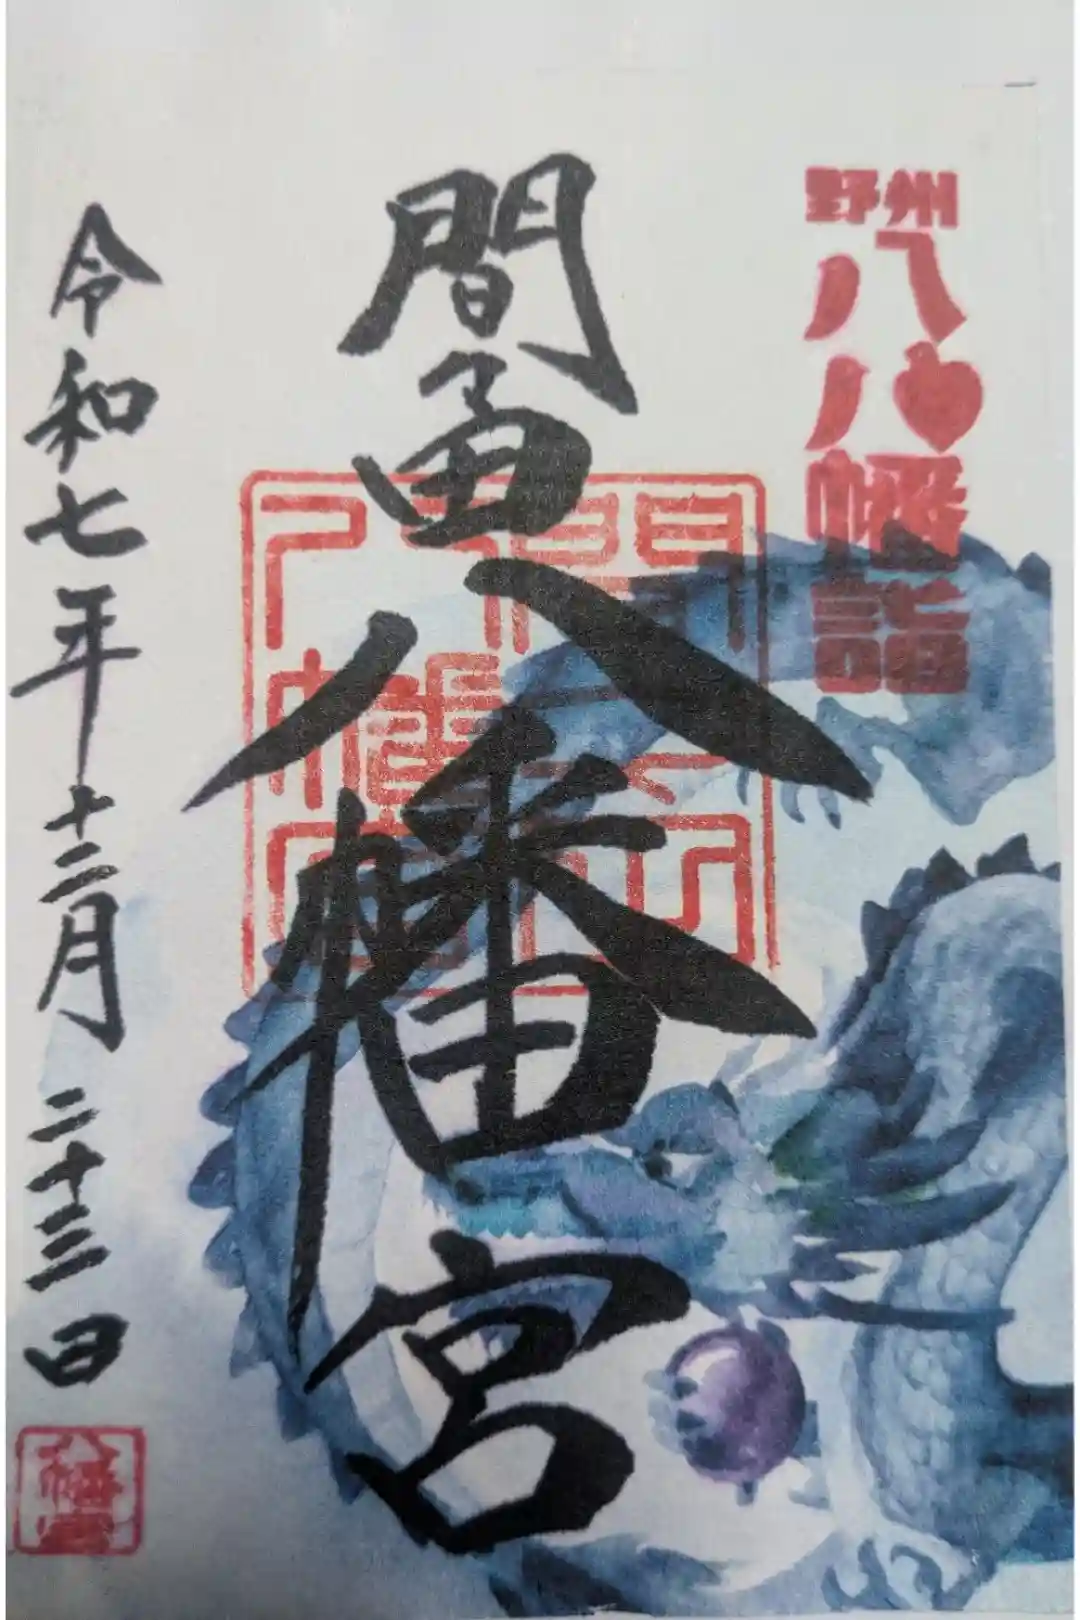 野州
八八幡詣
間々田八幡宮
令和七年十二月二十三日
八幡宮